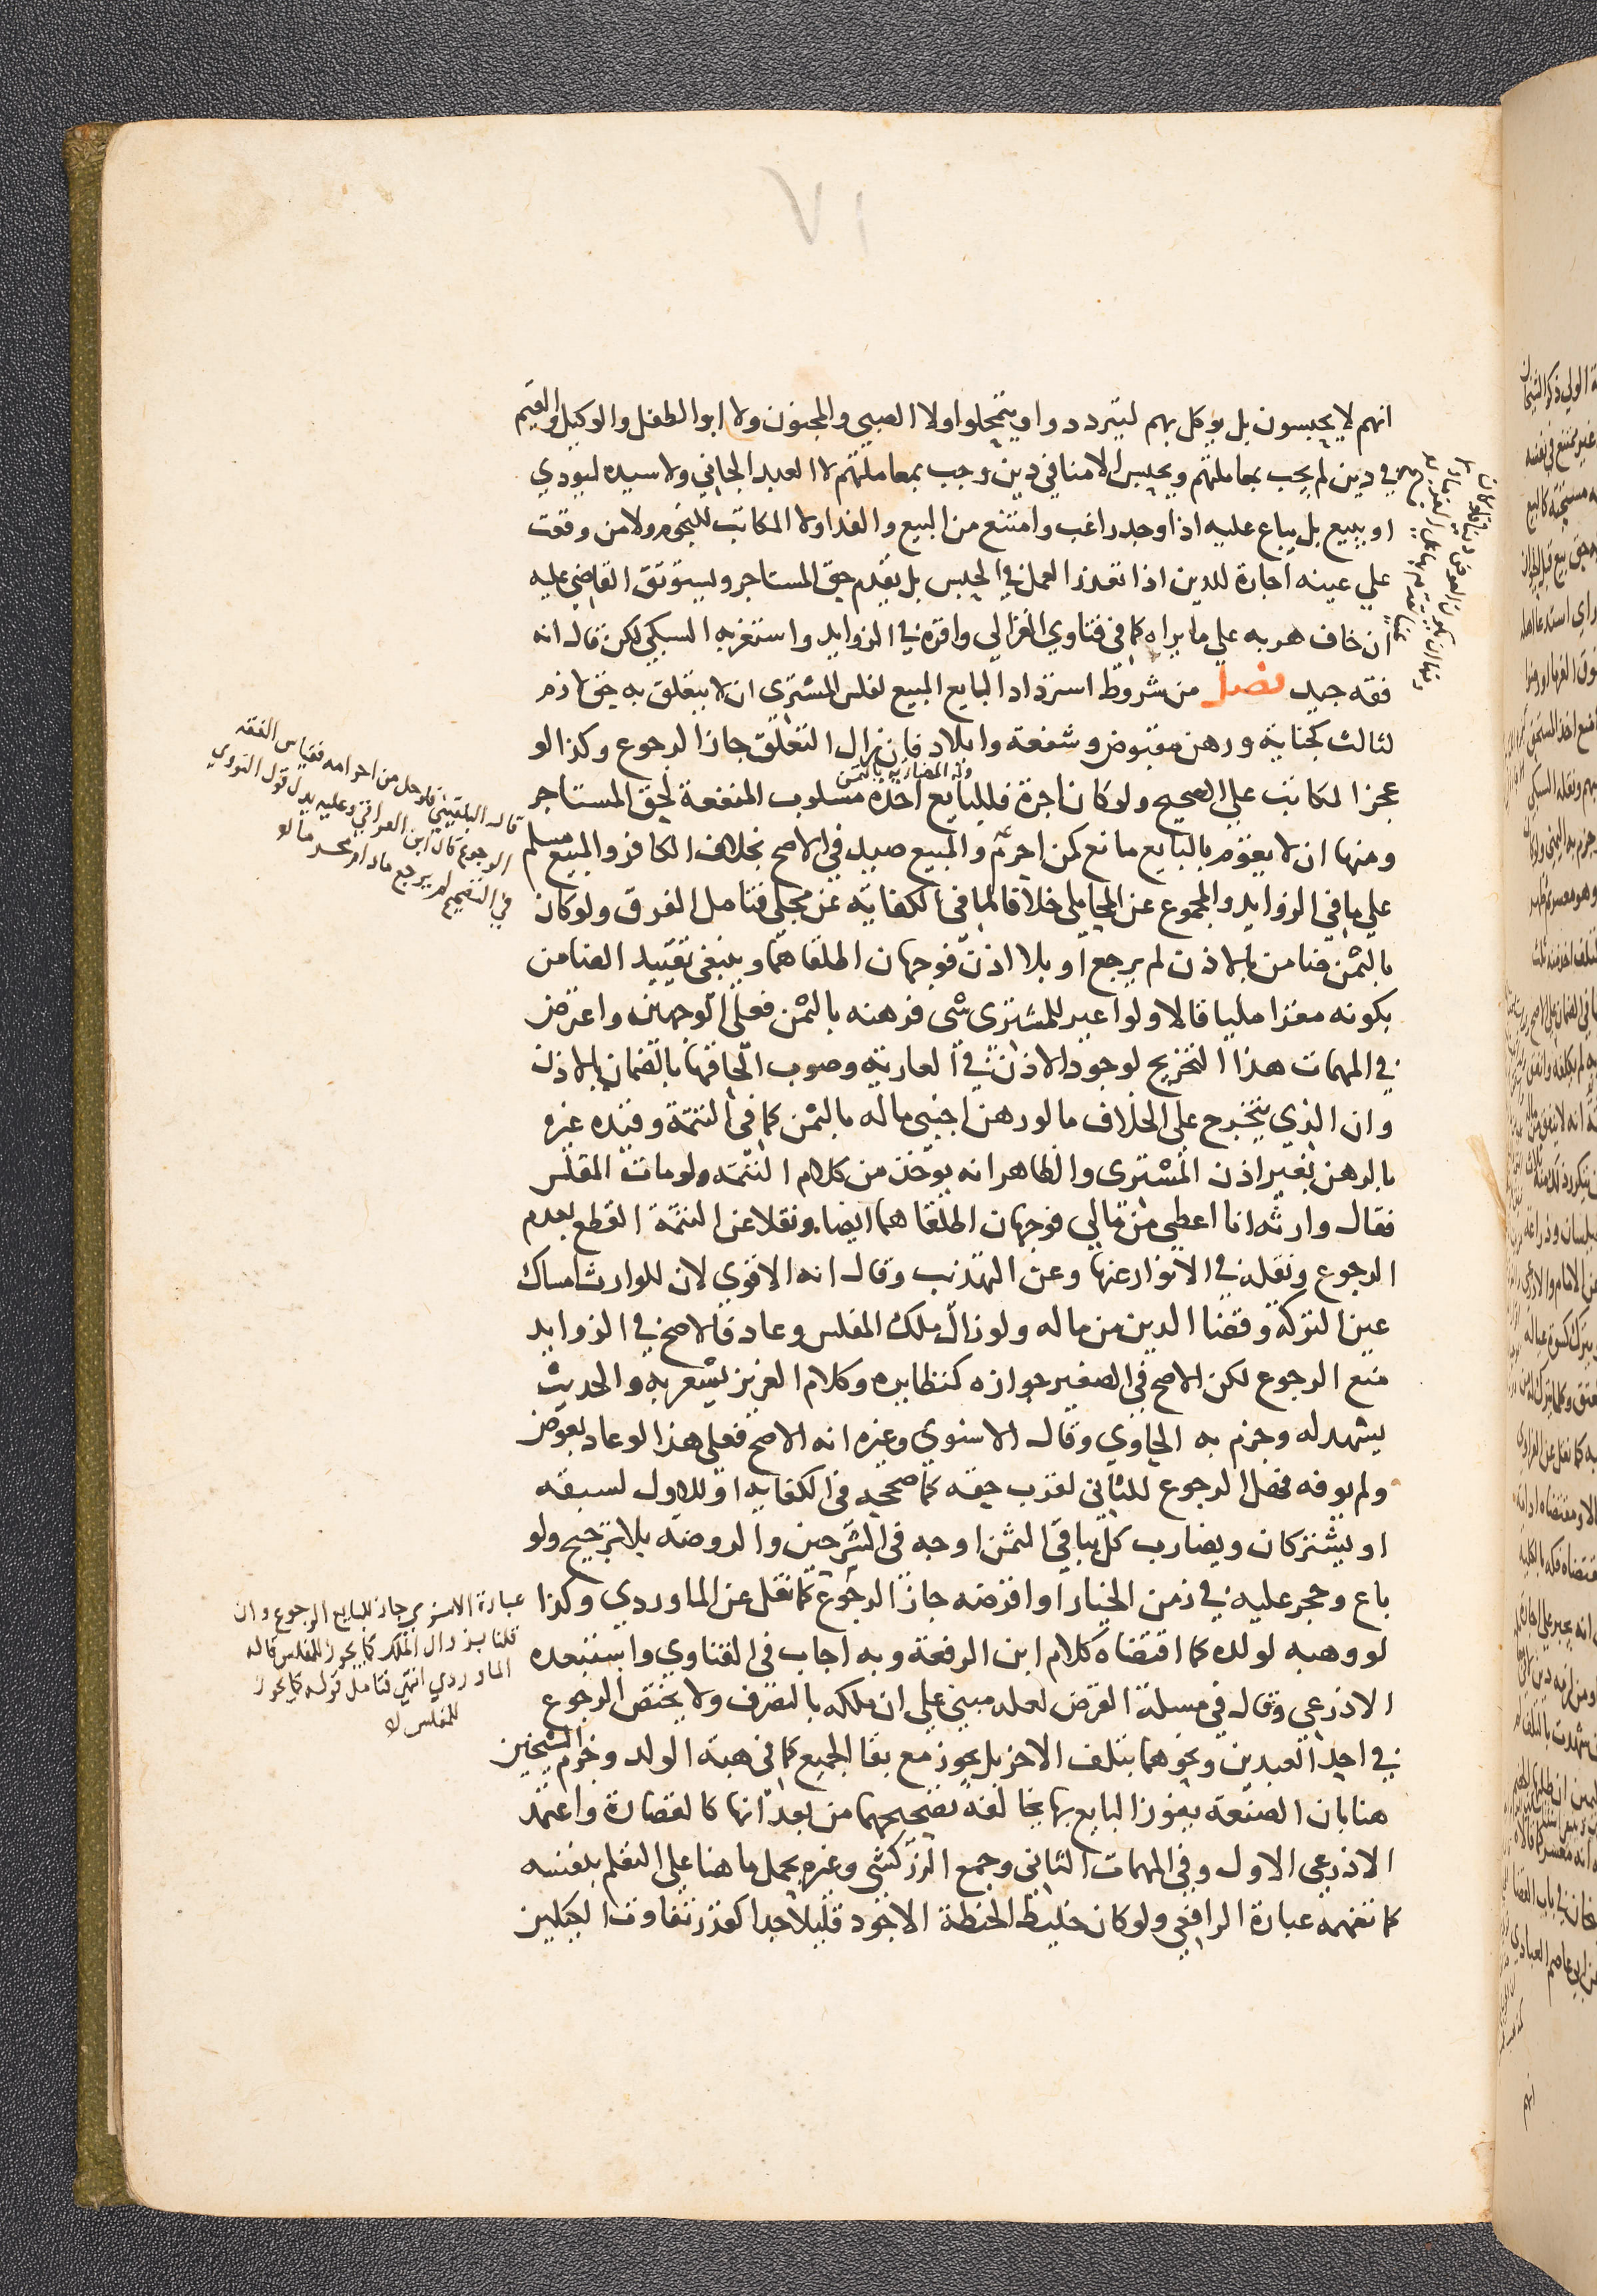 ٧١
انهم لا يحبسون بل يوكل بهم ليترددوا ويتمحلوا ولا الصبي والمجنون ولا ابو الطفل والوكيل والقيم
في دين لم يجب بمعاملتهم ويحبس الامنا في دين وجب بمعاملتهم لا العبد الجاني ولا سيده ليودي
او يبيع بل يباع عليه اذا وجد راغب وامتنع من البيع والفدا ولا المكاتب للنجوم ولا من وقعت
علي عينه اجارة للدين اذا تعذر العمل في الحبس بل يقدم حق المستاجر ويستوثق القاضي عليه
ان خاف هربه علي ما يراه كما في فتاوي الغزالي واقره في الزوايد واستغربه السبكي لكن قال انه
فقه جيد فصل من شروط استرداد البايع المبيع لفلس المشتري ان لا يتعلق به حق لازم
لثالث كجناية ورهن مقبوض وشفعة وايلاد فان زال التعلق جاز الرجوع وكذا لو
وله المضاربه بالثمن
عجز المكاتب علي الصحيح ولو كان اجرة فللبايع اخذه مسلوب المنفعة لحق المستاجر
ومنها ان لا يقوم بالبايع مانع كمن احرم والمبيع صيد في الاصح بخلاف الكافر والمبيع مسلم
علي ما في الزوايد والمجموع عن المحاملي خلافا لما في الكفاية عن مجلي فتامل الفرق ولو كان
بالثمن ضامن بالاذن لم يرجع او بلا اذن فوجهان اطلقاهما وينبغي تقييد الضامن
بكونه مقرا مليا قالا ولو اعير للمشتري شي فرهنه بالثمن فعلي الوجهين واعترض
في المهمات هذا التخريج لوجود الاذن في العارية وصوب الحاقها بالضمان بالاذن
وان الذي يتخرج علي الخلاف ما لو رهن اجنبي ماله بالثمن كما في التتمة وقيده غيره
بالرهن بغير اذن المشتري والظاهر انه يوخذ من كلام التتمه ولو مات المفلس
فقال وارثه انا اعطي من مالي فوجهان اطلقاهما ايضا ونقلا عن التتمة القطع بعدم
الرجوع ونقله في الانوار عنها وعن التهذيب وقال انه الاقوي لان للوارث امساك
عين التركة وقضا الدين من ماله ولو زال ملك المفلس وعاد فالاصح في الزوايد
منع الرجوع لكن الاصح في الصغير جوازه كنظايره وكلام العزيز يشعر به والحديث
يشهد له وجزم به الحاوي وقال الاسنوي وغيره انه الاصح فعلي هذا لو عاد بعوض
ولم يوفه فهل الرجوع للثاني لقرب حقه كما صححه في الكفايه او للاول لسبقه
او يشتركان ويضارب كل بباقي الثمن اوجه في الشرحين والروضه بلا ترجيح ولو
باع وحجر عليه في زمن الخيار او اقرضه جاز الرجوع كما نقل عن الماوردي وكذا
لو وهبه لولده كما اقتضاه كلام ابن الرفعة وبه اجاب في الفتاوي واستبعده
الاذرعي وقال في مسلة القرض لعله مبني علي ان ملكه بالتصرف ولا يختص الرجوع
في احد العبدين ونحوهما بتلف الاخر بل يجوز مع بقا الجميع كما في هبة الولد وجزم الشيخين
هنا بان الصنعة يفوز البايع بها يخالفه تصحيحهما من بعد انها كالقصارة واعتمد
الاذرعي الاول وفي المهمات الثاني وجمع الزركشي وغيره بحمل ما هنا علي التعلم بنفسه
كما تفهمه عبارة الرافعي ولو كان خليط الحنطة الاجود قليلا جدا كقدر تفاوت الكيلين
قاله البلقيني فلو حل من احرامه فقياس الفقه
الرجوع قال ابن العراقي وعليه يدل قول النووي
في التصحيح لم يرجع ما دام محرما لو
عبارة الاسنوي جاز للبايع الرجوع وان
قلنا بزوال الملك كما يجوز للمفلس قاله
الماوردي انتهي فتامل قوله كما يجوز
للمفلس لا